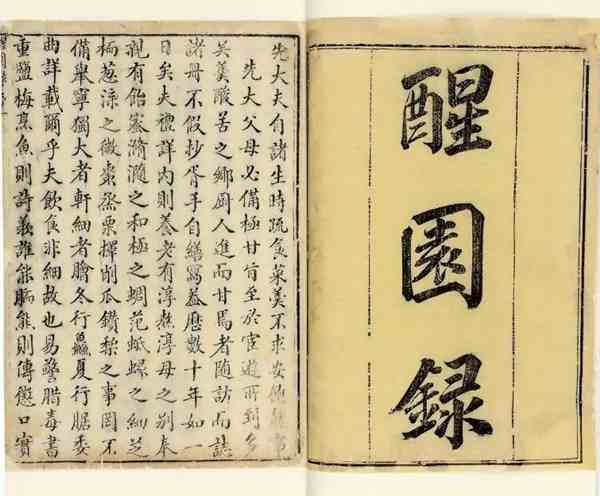 醒園錄
先大夫自諸生時疏食菜羹不求安飽
先大父母必備極甘旨至於宦遊所到多
吳羹酸苦之鄉厨人進而甘焉者隨訪而誌
諸冊不假抄胥手自繕寫蓋歷數十年如一
日矣夫禮詳內則養老有淳熬淳母之別奉
親有飴蜜滫瀡之和極之蜩范蚳蝝之細芝
栭葱渿之微棗烝栗擇削瓜鑽棃之事罔不
備舉寧獨大者軒細者膾冬行鱻夏行腒委
曲詳載爾乎夫飲食非細故也易警腊毒書
重鹽梅烹魚則詩羨誰能胹熊則傳懲口實